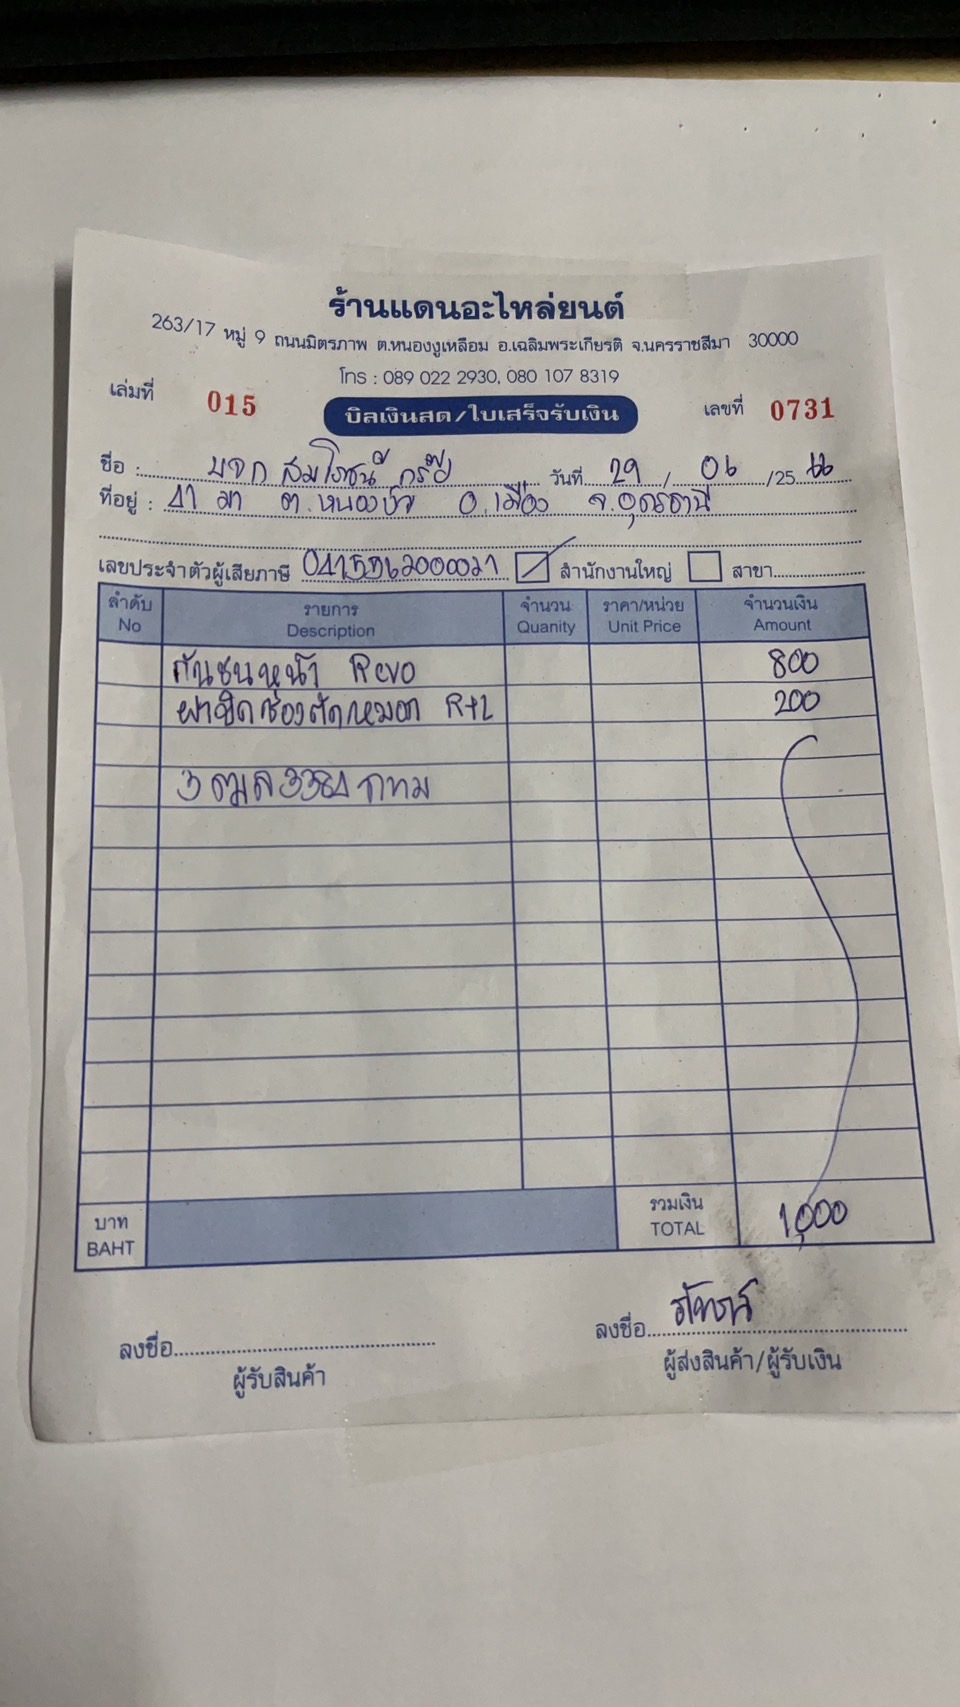 ร้านแดนอะไหล่ยนต์
263/17 หมู่ 9 ถนนมิตรภาพ ต.หนองงูเหลือม อ.เฉลิมพระเกียรติ จ.นครราชสีมา 30000
โทร : 089 022 2930, 080 107 8319
เล่มที่ 015 บิลเงินสด/ใบเสร็จรับเงิน เลขที่ 0731
ชื่อ : บจก สมโรชน์ กรุ๊ป วันที่ 29 / 06 /25 66
ที่อยู่ : ต.หนองบัว อ.เมือง จ.อุดรธานี
เลขประจำตัวผู้เสียภาษี 0415562000021 สำนักงานใหญ่ สาขา
ลำดับ รายการ จำนวน ราคา/หน่วย จำนวนเงิน
No Description Quanity Unit Price Amount
กันชนหน้า Revo 800
ฝาปิดช่องตัดหมอก R+L 200
3 ฒล 3384 กทม
บาท รวมเงิน
BAHT TOTAL 1,000
ลงชื่อ ลงชื่อ
ผู้รับสินค้า ผู้ส่งสินค้า/ผู้รับเงิน